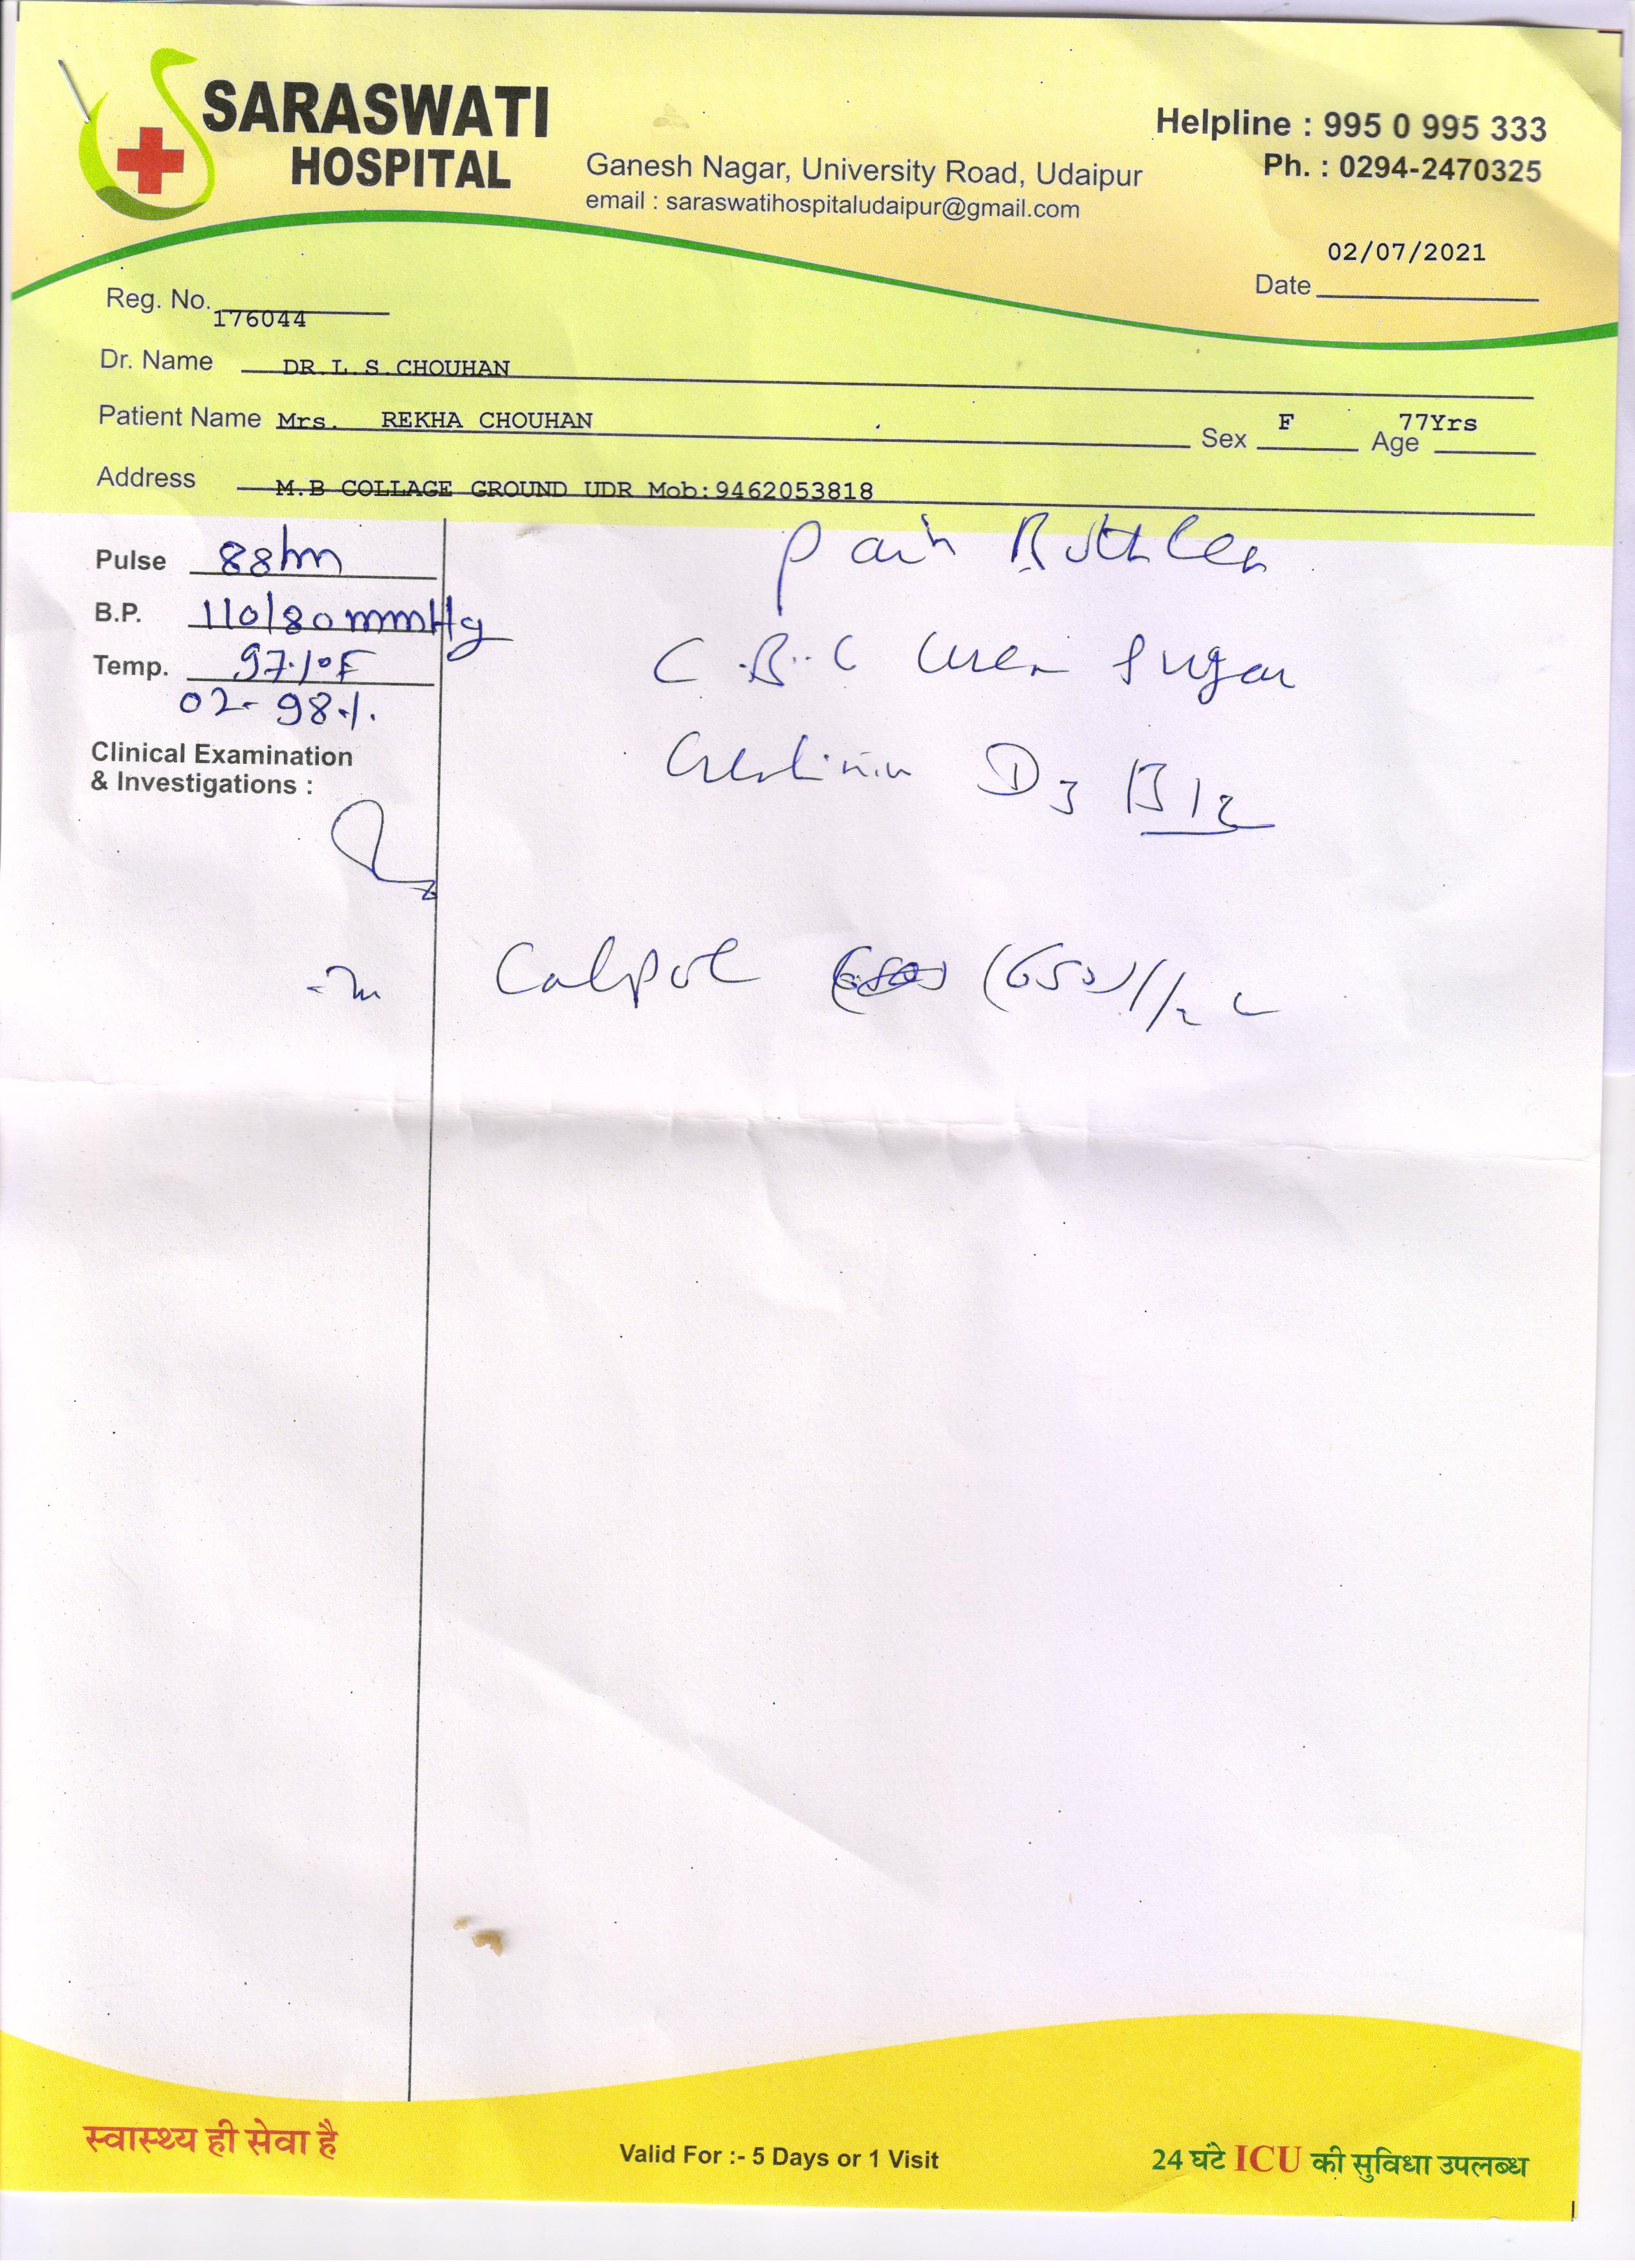 SARASWATI
HOSPITAL
Ganesh Nagar, University Road, Udaipur
email : saraswatihospitaludaipur@gmail.com
Helpline : 995 0 995 333
Ph. : 0294-2470325
Date 02/07/2021
Reg. No. 176044
Dr. Name DR.L.S.CHOUHAN
Patient Name Mrs. REKHA CHOUHAN Sex F Age 77Yrs
Address M.B COLLAGE GROUND UDR Mob:9462053818
Pulse 88/m
B.P. 110/80mmHg
Temp. 97.1°F
O2- 98%
Clinical Examination
& Investigations :
Pain Both Leg
C.B.C Urea Sugar
Creatinin D3 B12
Calpol (650) 1/2
स्वास्थ्य ही सेवा है
Valid For :- 5 Days or 1 Visit
24 घंटे ICU की सुविधा उपलब्ध